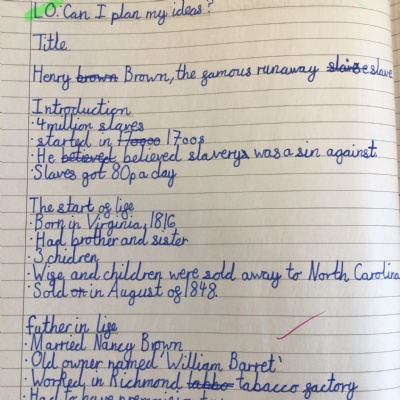 LO: Can I plan my ideas?
Title
Henry brown Brown, the gamous runaway slave
Introduction
· 4 million slaves
· started in 1700s
· He believed slavery was a sin against.
· Slaves got 80p a day
The start of lige
· Born in Virginia, 1816
· Had brother and sister
· 3 chidren
· Wige and children were sold away to North Carolina
· Sold on in August of 1848.
futher in lige
· Married Nancy Brown
· Old owner named 'William Barret'
· Worked in Richmond tabbo tobacco gactory
· Had to have